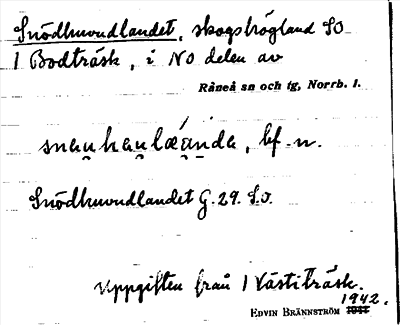 Snödhuvudlandet, skogshögland SO
1 Bodträsk, i NO delen av
Råneå sn och tg, Norrb. l.
snau̯hau̯lǽa̯nda, bf. n.
Snödhuvudlandet G. 29. So.
Uppgiften från 1 Västiträsk.
1942.
EDVIN BRÄNNSTRÖM 1941